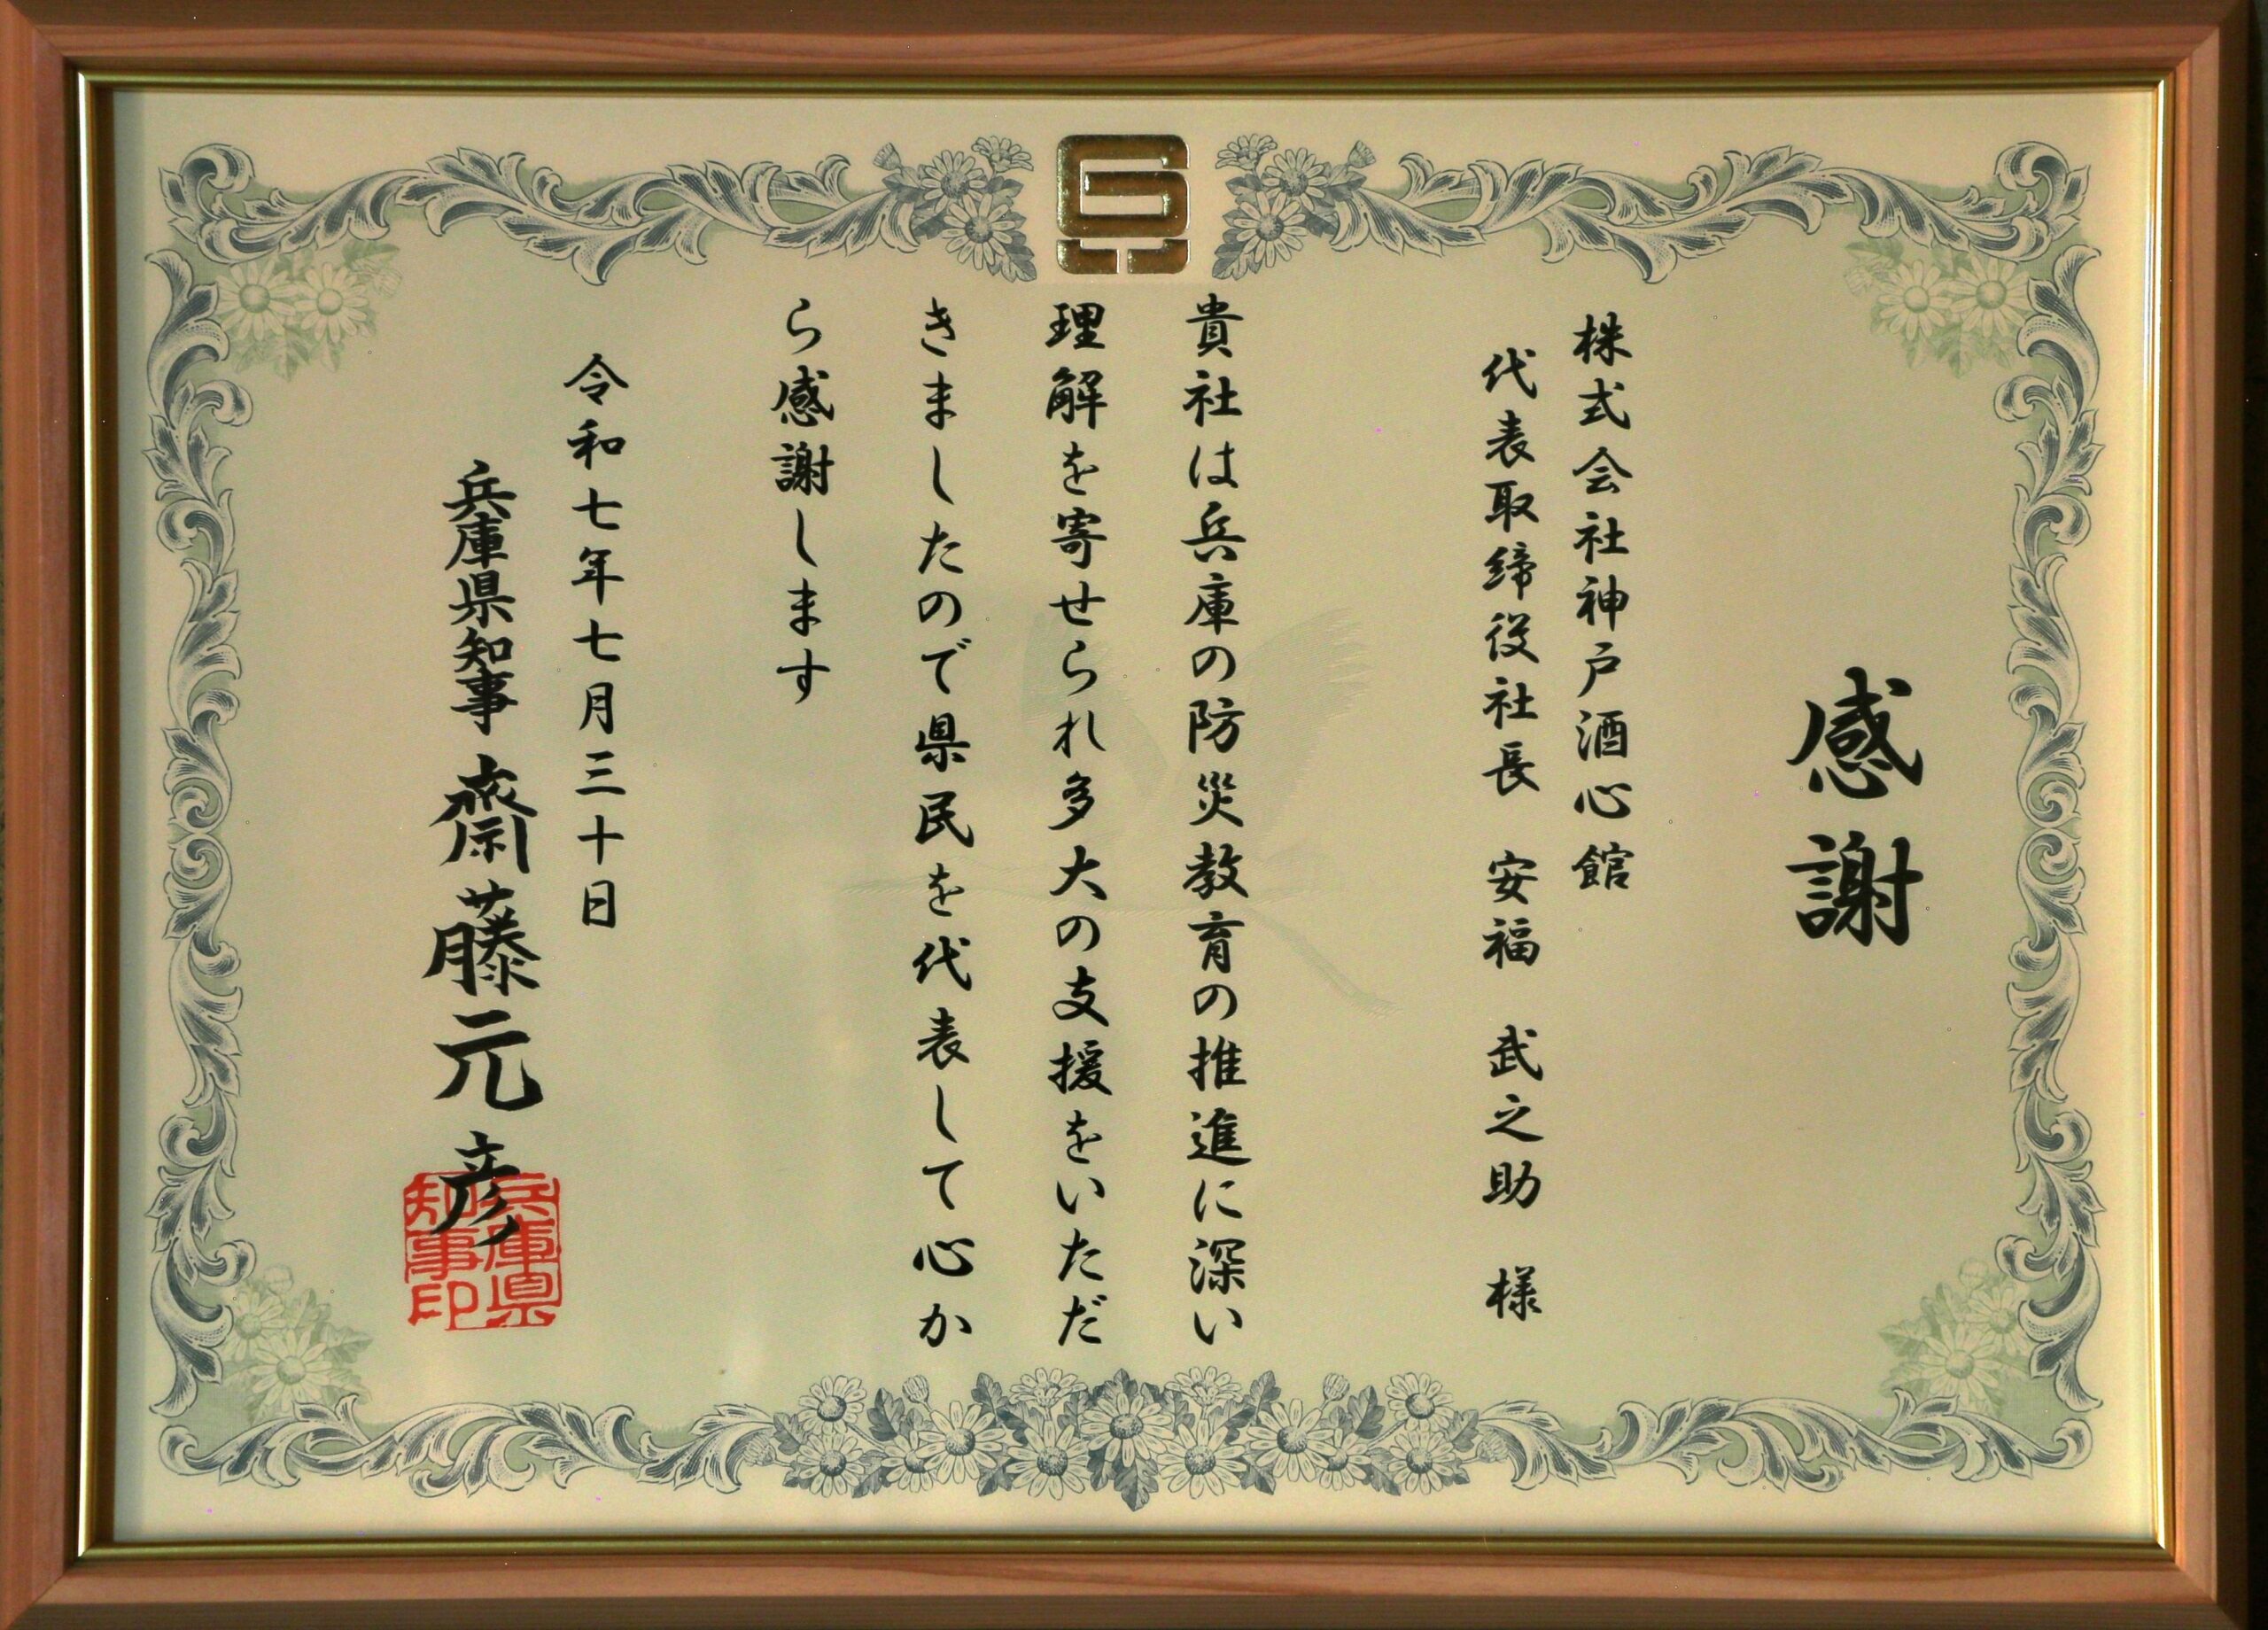 感謝
株式会社神戸酒心館
代表取締役社長 安福 武之助 様
貴社は兵庫の防災教育の推進に深い
理解を寄せられ多大の支援をいただ
きましたので県民を代表して心か
ら感謝します
令和七年七月三十日
兵庫県知事 齋藤元彦
兵庫県
知事印